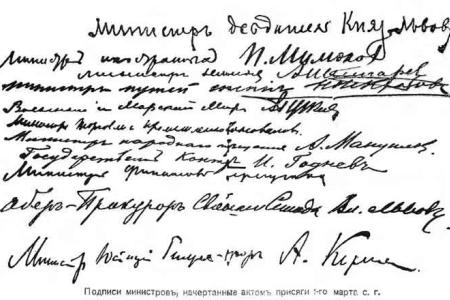 Министръ Предсѣдатель Князь Львовъ
Министръ иностранныхъ П. Милюков
министръ земледѣл А Шингарев
министръ путей сообщ Н Некрасовъ
Военный и Морской Мин А Гучков
Министр торговли и промышленности Коновалов
Министръ народнаго просвѣщения А. Мануилов
Государственный Контр И. Годневъ
Министръ финансовъ
Оберъ-Прокуроръ Святѣйш Синода Вл. Львовъ
Министр Юстиціи Генер-прокуроръ А. Керен
Подписи министровъ, начертанные актомъ присяги 1-го марта с. г.